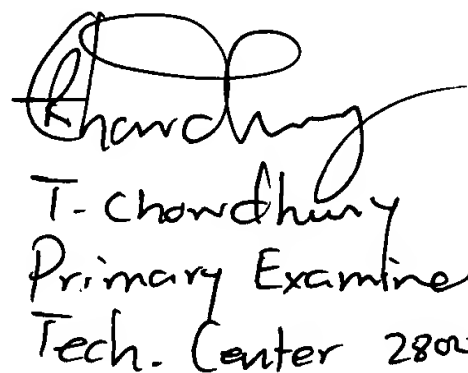 Chowdhury
T. Chowdhury
Primary Examine
Tech. Center 2800